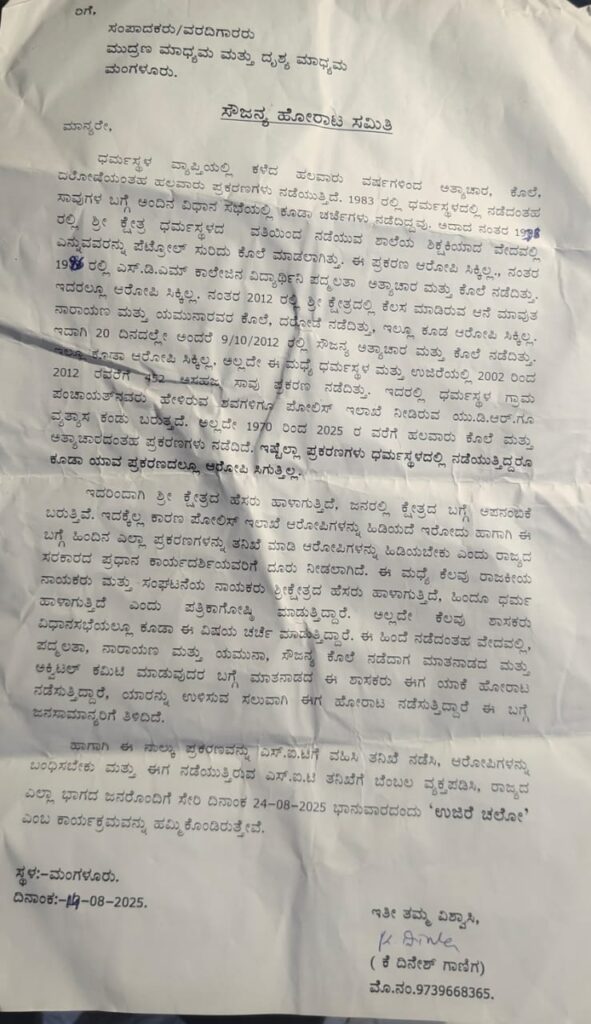 ರಿಗೆ,
ಸಂಪಾದಕರು/ವರದಿಗಾರರು
ಮುದ್ರಣ ಮಾಧ್ಯಮ ಮತ್ತು ದೃಶ್ಯ ಮಾಧ್ಯಮ
ಮಂಗಳೂರು.
ಸೌಜನ್ಯ ಹೋರಾಟ ಸಮಿತಿ
ಮಾನ್ಯರೇ,
ಧರ್ಮಸ್ಥಳ ವ್ಯಾಪ್ತಿಯಲ್ಲಿ ಕಳೆದ ಹಲವಾರು ವರ್ಷಗಳಿಂದ ಅತ್ಯಾಚಾರ, ಕೊಲೆ,
ದರೋಡೆಯಂತಹ ಹಲವಾರು ಪ್ರಕರಣಗಳು ನಡೆಯುತ್ತಿದೆ. 1983 ರಲ್ಲಿ ಧರ್ಮಸ್ಥಳದಲ್ಲಿ ನಡೆದಂತಹ
ಸಾವುಗಳ ಬಗ್ಗೆ ಅಂದಿನ ವಿಧಾನ ಸಭೆಯಲ್ಲಿ ಕೂಡಾ ಚರ್ಚೆಗಳು ನಡೆದಿದ್ದವು. ಅದಾದ ನಂತರ
ರಲ್ಲಿ ಶ್ರೀ ಕ್ಷೇತ್ರ ಧರ್ಮಸ್ಥಳದ ವತಿಯಿಂದ ನಡೆಯುವ ಶಾಲೆಯ ಶಿಕ್ಷಕಿಯಾದ ವೇದವಲ್ಲಿ
ಎನ್ನುವವರನ್ನು ಪೆಟ್ರೋಲ್ ಸುರಿದು ಕೊಲೆ ಮಾಡಲಾಗಿತ್ತು. ಈ ಪ್ರಕರಣ ಆರೋಪಿ ಸಿಕ್ಕಿಲ್ಲ., ನಂತರ
ರಲ್ಲಿ ಎಸ್.ಡಿ.ಎಮ್ ಕಾಲೇಜಿನ ವಿದ್ಯಾರ್ಥಿನಿ ಪದ್ಮಲತಾ ಅತ್ಯಾಚಾರ ಮತ್ತು ಕೊಲೆ ನಡೆದಿತ್ತು.
ಇದರಲ್ಲೂ ಆರೋಪಿ ಸಿಕ್ಕಿಲ್ಲ. ನಂತರ 2012 ರಲ್ಲಿ ಶ್ರೀ ಕ್ಷೇತ್ರದಲ್ಲಿ ಕೆಲಸ ಮಾಡಿರುವ ಆನೆ ಮಾವುತ
ನಾರಾಯಣ ಮತ್ತು ಯಮುನಾರವರ ಕೊಲೆ, ದರೋಡೆ ನಡೆದಿತ್ತು, ಇಲ್ಲೂ ಕೂಡ ಆರೋಪಿ ಸಿಕ್ಕಿಲ್ಲ.
ಇದಾಗಿ 20 ದಿನದಲ್ಲೇ ಅಂದರೆ 9/10/2012 ರಲ್ಲಿ ಸೌಜನ್ಯ ಅತ್ಯಾಚಾರ ಮತ್ತು ಕೊಲೆ ನಡೆದಿತ್ತು.
ಇಲ್ಲೂ ಕೂಡಾ ಆರೋಪಿ ಸಿಕ್ಕಿಲ್ಲ, ಅಲ್ಲದೇ ಈ ಮಧ್ಯೆ ಧರ್ಮಸ್ಥಳ ಮತ್ತು ಉಜಿರೆಯಲ್ಲಿ 2002 ರಿಂದ
2012 ರವರೆಗೆ 452 ಅಸಹಜ ಸಾವು ಪ್ರಕರಣ ನಡೆದಿತ್ತು. ಇದರಲ್ಲಿ ಧರ್ಮಸ್ಥಳ ಗ್ರಾಮ
ಪಂಚಾಯತ್‌ನವರು ಹೇಳಿರುವ ಶವಗಳಿಗೂ ಪೋಲಿಸ್ ಇಲಾಖೆ ನೀಡಿರುವ ಯು.ಡಿ.ಆರ್.ಗೂ
ವ್ಯತ್ಯಾಸ ಕಂಡು ಬರುತ್ತದೆ. ಅಲ್ಲದೇ 1970 ರಿಂದ 2025 ರ ವರೆಗೆ ಹಲವಾರು ಕೊಲೆ ಮತ್ತು
ಅತ್ಯಾಚಾರದಂತಹ ಪ್ರಕರಣಗಳು ನಡೆದಿದೆ. ಇಷ್ಟೆಲ್ಲಾ ಪ್ರಕರಣಗಳು ಧರ್ಮಸ್ಥಳದಲ್ಲಿ ನಡೆಯುತ್ತಿದ್ದರೂ
ಕೂಡಾ ಯಾವ ಪ್ರಕರಣದಲ್ಲೂ ಆರೋಪಿ ಸಿಗುತ್ತಿಲ್ಲ.
ಇದರಿಂದಾಗಿ ಶ್ರೀ ಕ್ಷೇತ್ರದ ಹೆಸರು ಹಾಳಾಗುತ್ತಿದೆ, ಜನರಲ್ಲಿ ಕ್ಷೇತ್ರದ ಬಗ್ಗೆ ಅಪನಂಬಿಕೆ
ಬರುತ್ತಿವೆ. ಇದಕ್ಕೆಲ್ಲ ಕಾರಣ ಪೋಲಿಸ್ ಇಲಾಖೆ ಆರೋಪಿಗಳನ್ನು ಹಿಡಿಯದೆ ಇರೋದು ಹಾಗಾಗಿ ಈ
ಬಗ್ಗೆ ಹಿಂದಿನ ಎಲ್ಲಾ ಪ್ರಕರಣಗಳನ್ನು ತನಿಖೆ ಮಾಡಿ ಆರೋಪಿಗಳನ್ನು ಹಿಡಿಯಬೇಕು ಎಂದು ರಾಜ್ಯದ
ಸರಕಾರದ ಪ್ರಧಾನ ಕಾರ್ಯದರ್ಶಿಯವರಿಗೆ ದೂರು ನೀಡಲಾಗಿದೆ. ಈ ಮಧ್ಯೆ ಕೆಲವು ರಾಜಕೀಯ
ನಾಯಕರು ಮತ್ತು ಸಂಘಟನೆಯ ನಾಯಕರು ಶ್ರೀಕ್ಷೇತ್ರದ ಹೆಸರು ಹಾಳಾಗುತ್ತಿದೆ, ಹಿಂದೂ ಧರ್ಮ
ಹಾಳಾಗುತ್ತಿದೆ ಎಂದು ಪತ್ರಿಕಾಗೋಷ್ಠಿ ಮಾಡುತ್ತಿದ್ದಾರೆ. ಅಲ್ಲದೇ ಕೆಲವು ಶಾಸಕರು
ವಿಧಾನಸಭೆಯಲ್ಲೂ ಕೂಡಾ ಈ ವಿಷಯ ಚರ್ಚೆ ಮಾಡುತ್ತಿದ್ದಾರೆ. ಈ ಹಿಂದೆ ನಡೆದಂತಹ ವೇದವಲ್ಲಿ,
ಪದ್ಮಲತಾ, ನಾರಾಯಣ ಮತ್ತು ಯಮುನಾ, ಸೌಜನ್ಯ ಕೊಲೆ ನಡೆದಾಗ ಮಾತನಾಡದ ಮತ್ತು
ಅಕ್ವಿಟಲ್ ಕಮಿಟಿ ಮಾಡುವುದರ ಬಗ್ಗೆ ಮಾತನಾಡದ ಈ ಶಾಸಕರು ಈಗ ಯಾಕೆ ಹೋರಾಟ
ನಡೆಸುತ್ತಿದ್ದಾರೆ, ಯಾರನ್ನು ಉಳಿಸುವ ಸಲುವಾಗಿ ಈಗ ಹೋರಾಟ ನಡೆಸುತ್ತಿದ್ದಾರೆ ಈ ಬಗ್ಗೆ
ಜನಸಾಮಾನ್ಯರಿಗೆ ತಿಳಿದಿದೆ.
ಹಾಗಾಗಿ ಈ ನಾಲ್ಕು ಪ್ರಕರಣವನ್ನು ಎಸ್.ಐ.ಟಿಗೆ ವಹಿಸಿ ತನಿಖೆ ನಡೆಸಿ, ಆರೋಪಿಗಳನ್ನು
ಬಂಧಿಸಬೇಕು ಮತ್ತು ಈಗ ನಡೆಯುತ್ತಿರುವ ಎಸ್.ಐ.ಟಿ ತನಿಖೆಗೆ ಬೆಂಬಲ ವ್ಯಕ್ತಪಡಿಸಿ, ರಾಜ್ಯದ
ಎಲ್ಲಾ ಭಾಗದ ಜನರೊಂದಿಗೆ ಸೇರಿ ದಿನಾಂಕ 24-08-2025 ಭಾನುವಾರದಂದು ‘ಉಜಿರೆ ಚಲೋ’
ಎಂಬ ಕಾರ್ಯಕ್ರಮವನ್ನು ಹಮ್ಮಿಕೊಂಡಿರುತ್ತೇವೆ.
ಸ್ಥಳ:-ಮಂಗಳೂರು.
ದಿನಾಂಕ:-19-08-2025.
ಇತೀ ತಮ್ಮ ವಿಶ್ವಾಸಿ,
( ಕೆ ದಿನೇಶ್ ಗಾಣಿಗ)
ಮೊ.ನಂ.9739668365.